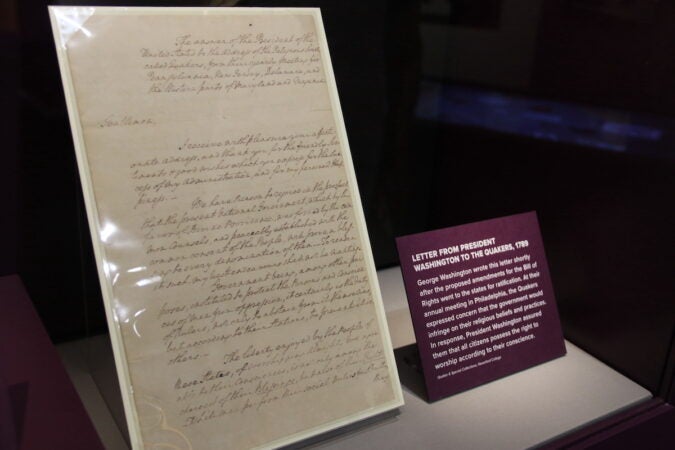 The answer of the President of the
United States to the address of the Religious Society
called Quakers, from their yearly Meeting for
Pennsylvania, New Jersey, Delaware, and
the Western parts of Maryland and Virginia
Gentlemen,
I receive with pleasure your affecti-
onate address, and thank you for the friendly Sen-
timents & good wishes which you express for the Suc-
cess of my administration, and for my personal Hap-
piness.—
We have Reason to rejoice in the prospect
that the present National Government, which by the
favor of Divine Providence, was formed by the com-
mon Counsels, and peacefully established with the
common consent of the People, will prove a bless-
ing to every denomination of them.— To render
it such, my best endeavours shall not be wanting.
Government being, among other pur-
poses, instituted to protect the Persons and Conscien-
ces of men from oppression, it certainly is the duty
of Rulers, not only to abstain from it themselves,
but according to their Stations, to prevent it in
others.—
The liberty enjoyed by the People of
these States, of worshipping Almighty God agree-
able to their Consciences, is not only among the
choicest of their Blessings, but also of their Rights—
While men perform their social Duties faithfully,
they
LETTER FROM PRESIDENT
WASHINGTON TO THE QUAKERS, 1789
George Washington wrote this letter shortly
after the proposed amendments for the Bill of
Rights went to the states for ratification. At their
annual meeting in Philadelphia, the Quakers
expressed concern that the government would
infringe on their religious beliefs and practices.
In response, President Washington assured
them that all citizens possess the right to
worship according to their conscience.
Quaker & Special Collections, Haverford College